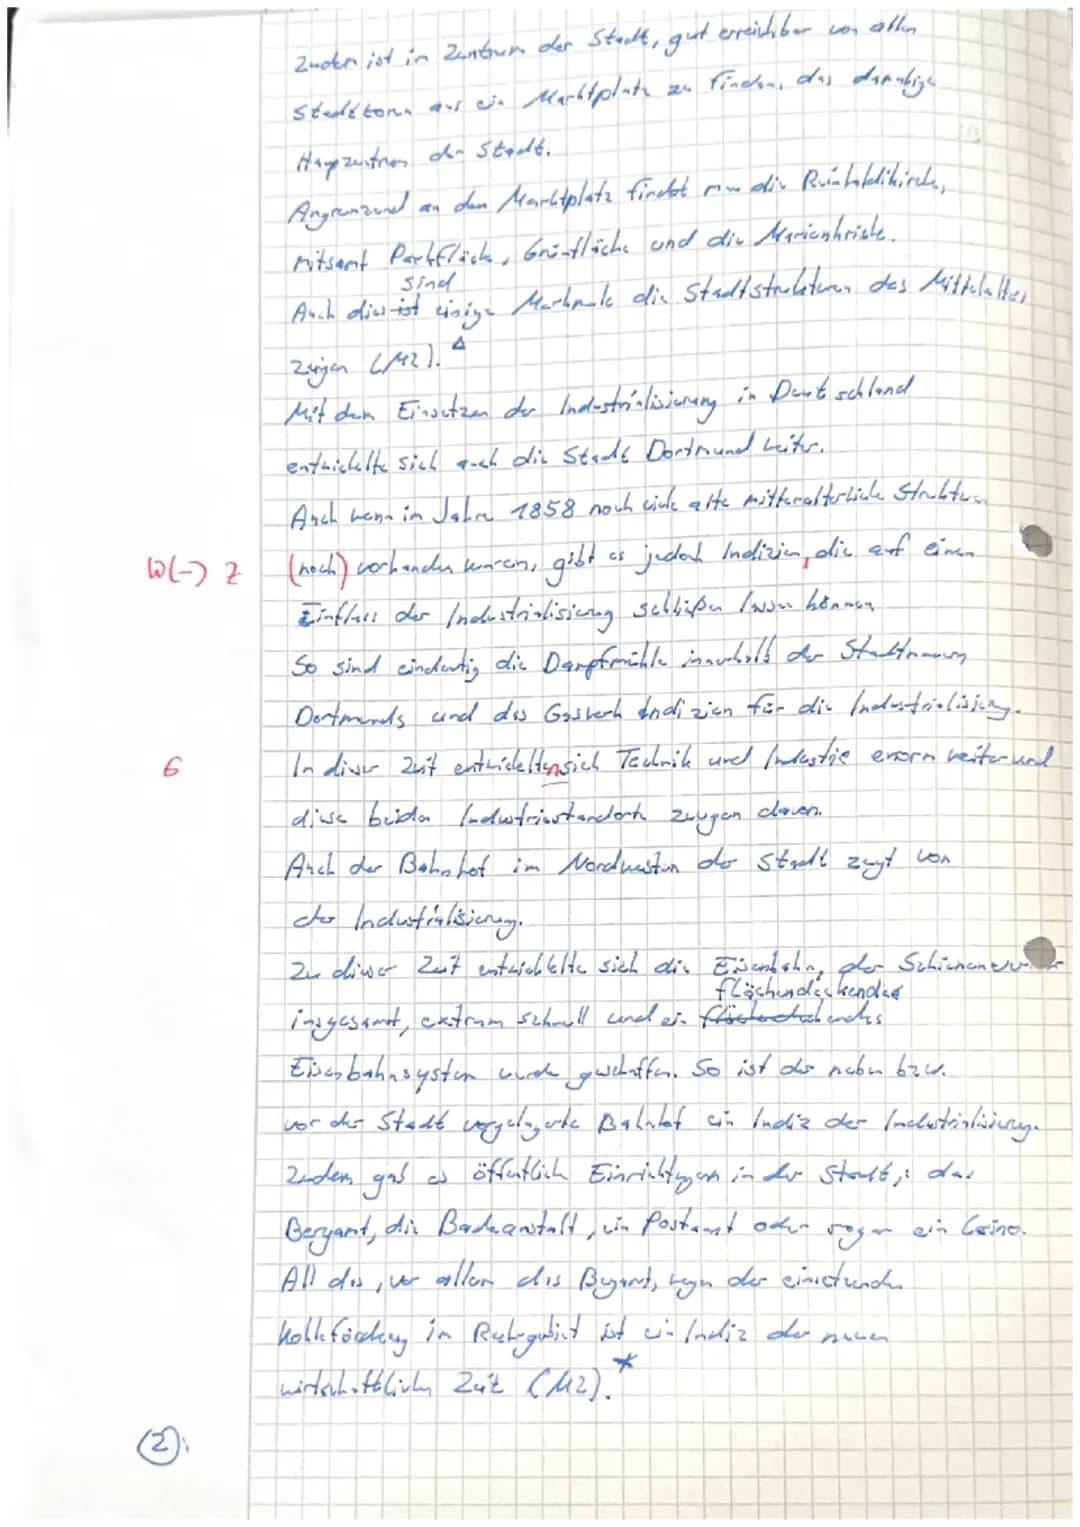 Zudem ist im Zentrum der Stadt, gut erreichbar von allen
Stadttoren aus ein Marktplatz zu finden, das damalige
Hauptzentrum der Stadt.
Angrenzend an den Marktplatz findet man die Reinholdikirche,
mitsamt Parkfläche, Grünfläche und die Marienkriche.
sind
Auch dies ist einige Merkmale die Stadtstrukturen des Mittelalters
zeigen (M2). Δ
Mit dem Einsetzen der Industrialisierung in Deutschland
entwickelte sich auch die Stadt Dortmund weiter.
Auch wenn im Jahre 1858 noch viele alte mittelalterliche Strukturen
W(-) Z (noch) vorhanden waren, gibt es jedoch Indizien, die auf einen
Einfluss der Industrialisierung schließen lassen können
So sind eindeutig die Dampfmühle innerhalb der Stadtmauern
Dortmunds und das Gaswerk Indizien für die Industrialisierung.
6 In dieser Zeit entwickelten sich Technik und Industrie enorm weiter und
diese beiden Industriestandorte zeugen davon.
Auch der Bahnhof im Nordwesten der Stadt zeugt von
der Industrialisierung.
Zu dieser Zeit entwickelte sich die Eisenbahn, der
flächendeckendes
insgesamt, extrem schnell und ein
Eisenbahnsystem wurde geschaffen. So ist der neben bzw.
vor der Stadt vorgelagerte Bahnhof ein Indiz der Industrialisierung.
Zudem gab es öffentlich Einrichtungen in der Stadt,: das
Bergamt, die Badeanstalt, ein Postamt oder sogar ein Casino.
All dies, vor allem das Bergamt, wegen der einsetzenden
Kohleförderung im Ruhrgebiet ist ein Indiz der neuen
wirtschaftlichen Zeit (M2). *
(2):